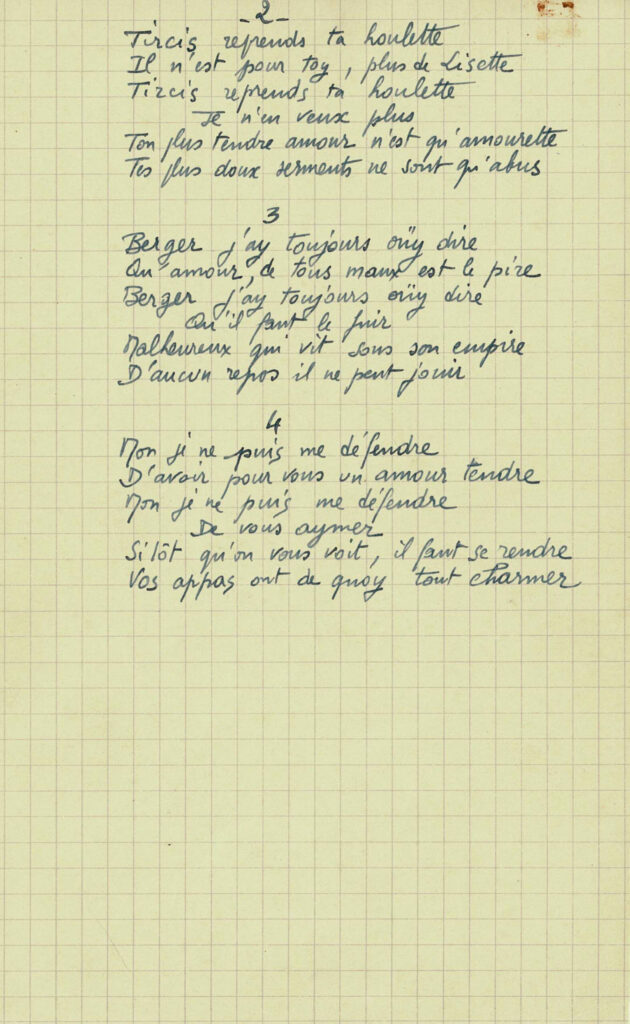 -2-
Tircis reprends ta houlette
Il n'est pour toy, plus de Lisette
Tircis reprends ta houlette
Je n'en veux plus
Ton plus tendre amour n'est qu'amourette
Tes plus doux serments ne sont qu'abus
3
Berger j'ay toujours oüy dire
Qu'amour, de tous maux est le pire
Berger j'ay toujours oüy dire
Qu'il faut le fuir
Malheureux qui vit sous son empire
D'aucun repos il ne peut jouir
4
Non je ne puis me défendre
D'avoir pour vous un amour tendre
Non je ne puis me défendre
De vous aymer
Sitôt qu'on vous voit, il faut se rendre
Vos appas ont de quoy tout charmer